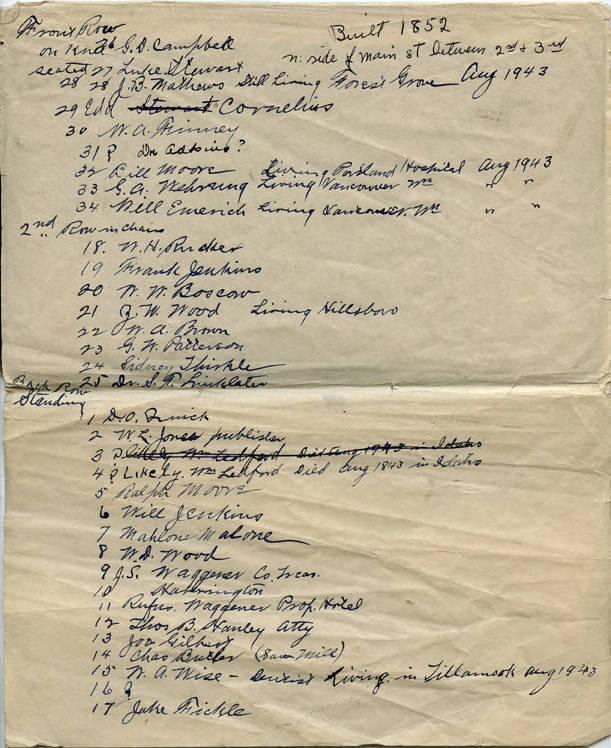 Front Row
Built 1852
on Knee 26 G.D. Campbell
n. side of Main st between 2nd & 3rd
seated 27 Luke Stewart
28 28 J.B. Mathews Still Living Forest Grove Aug 1943
29 Edd Stewart Cornelius
30 W.A. Finney
31 ? Dr Adkins?
32 Bill Moore Living Portland Hospital Aug 1943
33 G.A. Wehrung Living Vancouver Wn " "
34 Will Emerich Living Vancouver. Wn " "
2nd Row in chairs
18. W.H. Rucker
19 Frank Jenkins
20 W.W. Boscow
21 Z.W. Wood Living Hillsboro
22 W.A. Brown
23 G.W. Patterson
24 Sidney Thirkle
25 Dr. S.T. Linklater
Back Row
Standing
1 D.O. Quick
2 W.L. Jones publisher
3 ? Likely Wm Ledford Died Aug 1943 in Idaho
4 ? Likely Wm Ledford Died Aug 1843 in Idaho
5 Ralph Moore
6 Will Jenkins
7 Mahlone Malone
8 W.D. Wood
9 J.S. Waggener Co. Treas.
10 Harrington
11 Rufus. Waggener Prop. Hotel
12 Thos B. Hanley Atty
13 Joe Gilbert
14 Chas Butler (Saw Mill)
15 W.A. Wise - Dentist Living in Tillamook Aug 1943
16 ?
17 Jake Fickle